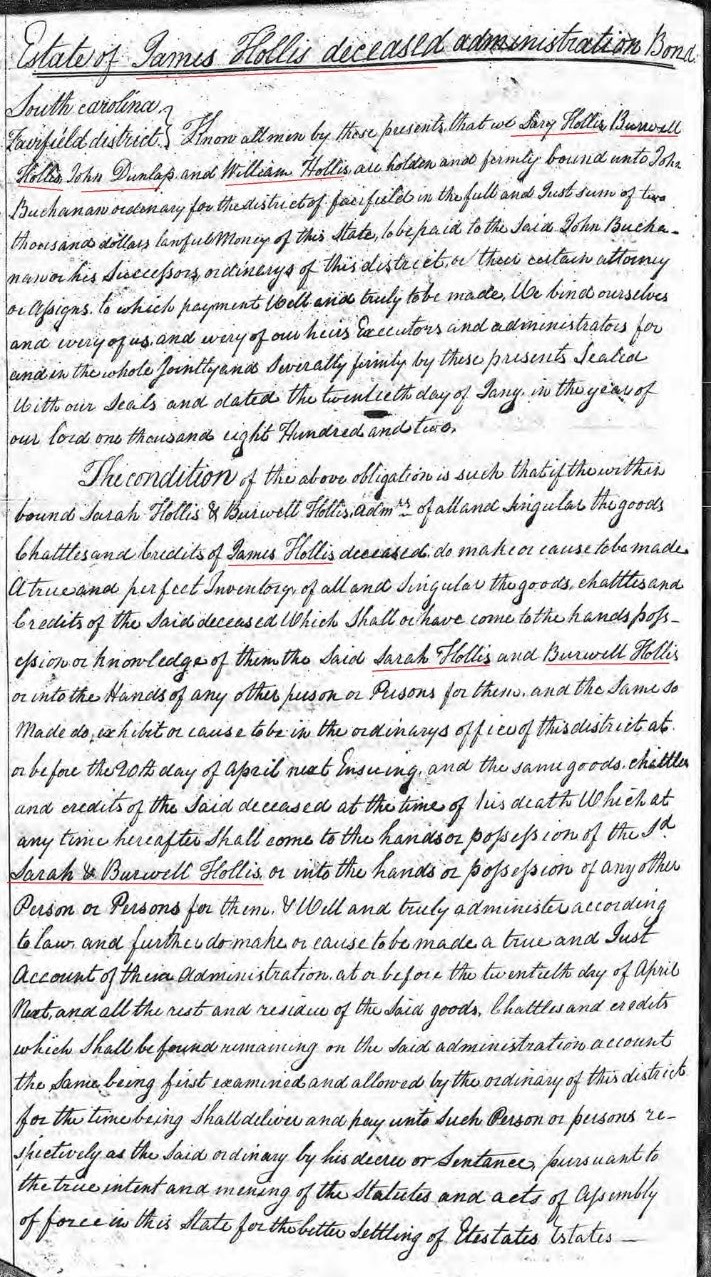 Estate of James Hollis deceased administration Bond
South carolina }
Fairfield district } Know all men by these presents, that we Sary Hollis Burwell
Hollis John Dunlap and William Hollis are holden and firmly bound unto John
Buchanan ordinary for the district of fairfield in the full and Just sum of two
thousand dollars lawful Money of this State, to be paid to the Said John Bucha-
nan or his Successors, ordinarys of this district, or their certain attorney
or Assigns. to which payment Well and truly to be made, We bind ourselves
and every of us, and every of our heirs Executors and administrators for
and in the whole Jointly and Severally firmly by these presents Sealed
With our Seals and dated the twentieth day of Jany. in the year of
our lord one thousand eight Hundred and two.
The condition of the above obligation is such that if the within
bound Sarah Hollis & Burwell Hollis, admrs of all and Singular the goods
Chattles and Credits of James Hollis deceased. do make or cause to be made
A true and perfect Inventory, of all and Singular the goods, chattles and
Credits of the Said deceased Which Shall or have come to the hands poss-
ession or knowledge of them the Said Sarah Hollis and Burwell Hollis
or into the Hands of any other person or Persons for them. and the Same so
Made do, exhibit or cause to be in the ordinarys office of this district at
or before the 20th day of April next Ensuing, and the same goods. chattles
and credits of the Said deceased at the time of his death Which at
any time hereafter Shall come to the hands or possession of the sd
Sarah & Burwell Hollis, or into the hands or possession of any other
Person or Persons for them. & Well and truly administer according
to law. and further do make or cause to be made a true and Just
Account of their administration. at or before the twentieth day of April
Next, and all the rest and residue of the Said goods. Chattles and credits
which Shall be found remaining on the said administration account
the Same being first examined and allowed by the ordinary of this district
for the time being Shall deliver and pay unto Such Person or persons re-
spectively as the Said ordinary by his decree or Sentance, pursuant to
the true intent and mening of the Statutes and acts of Assembly
of force in this State for the better Settling of Etestates Estates —